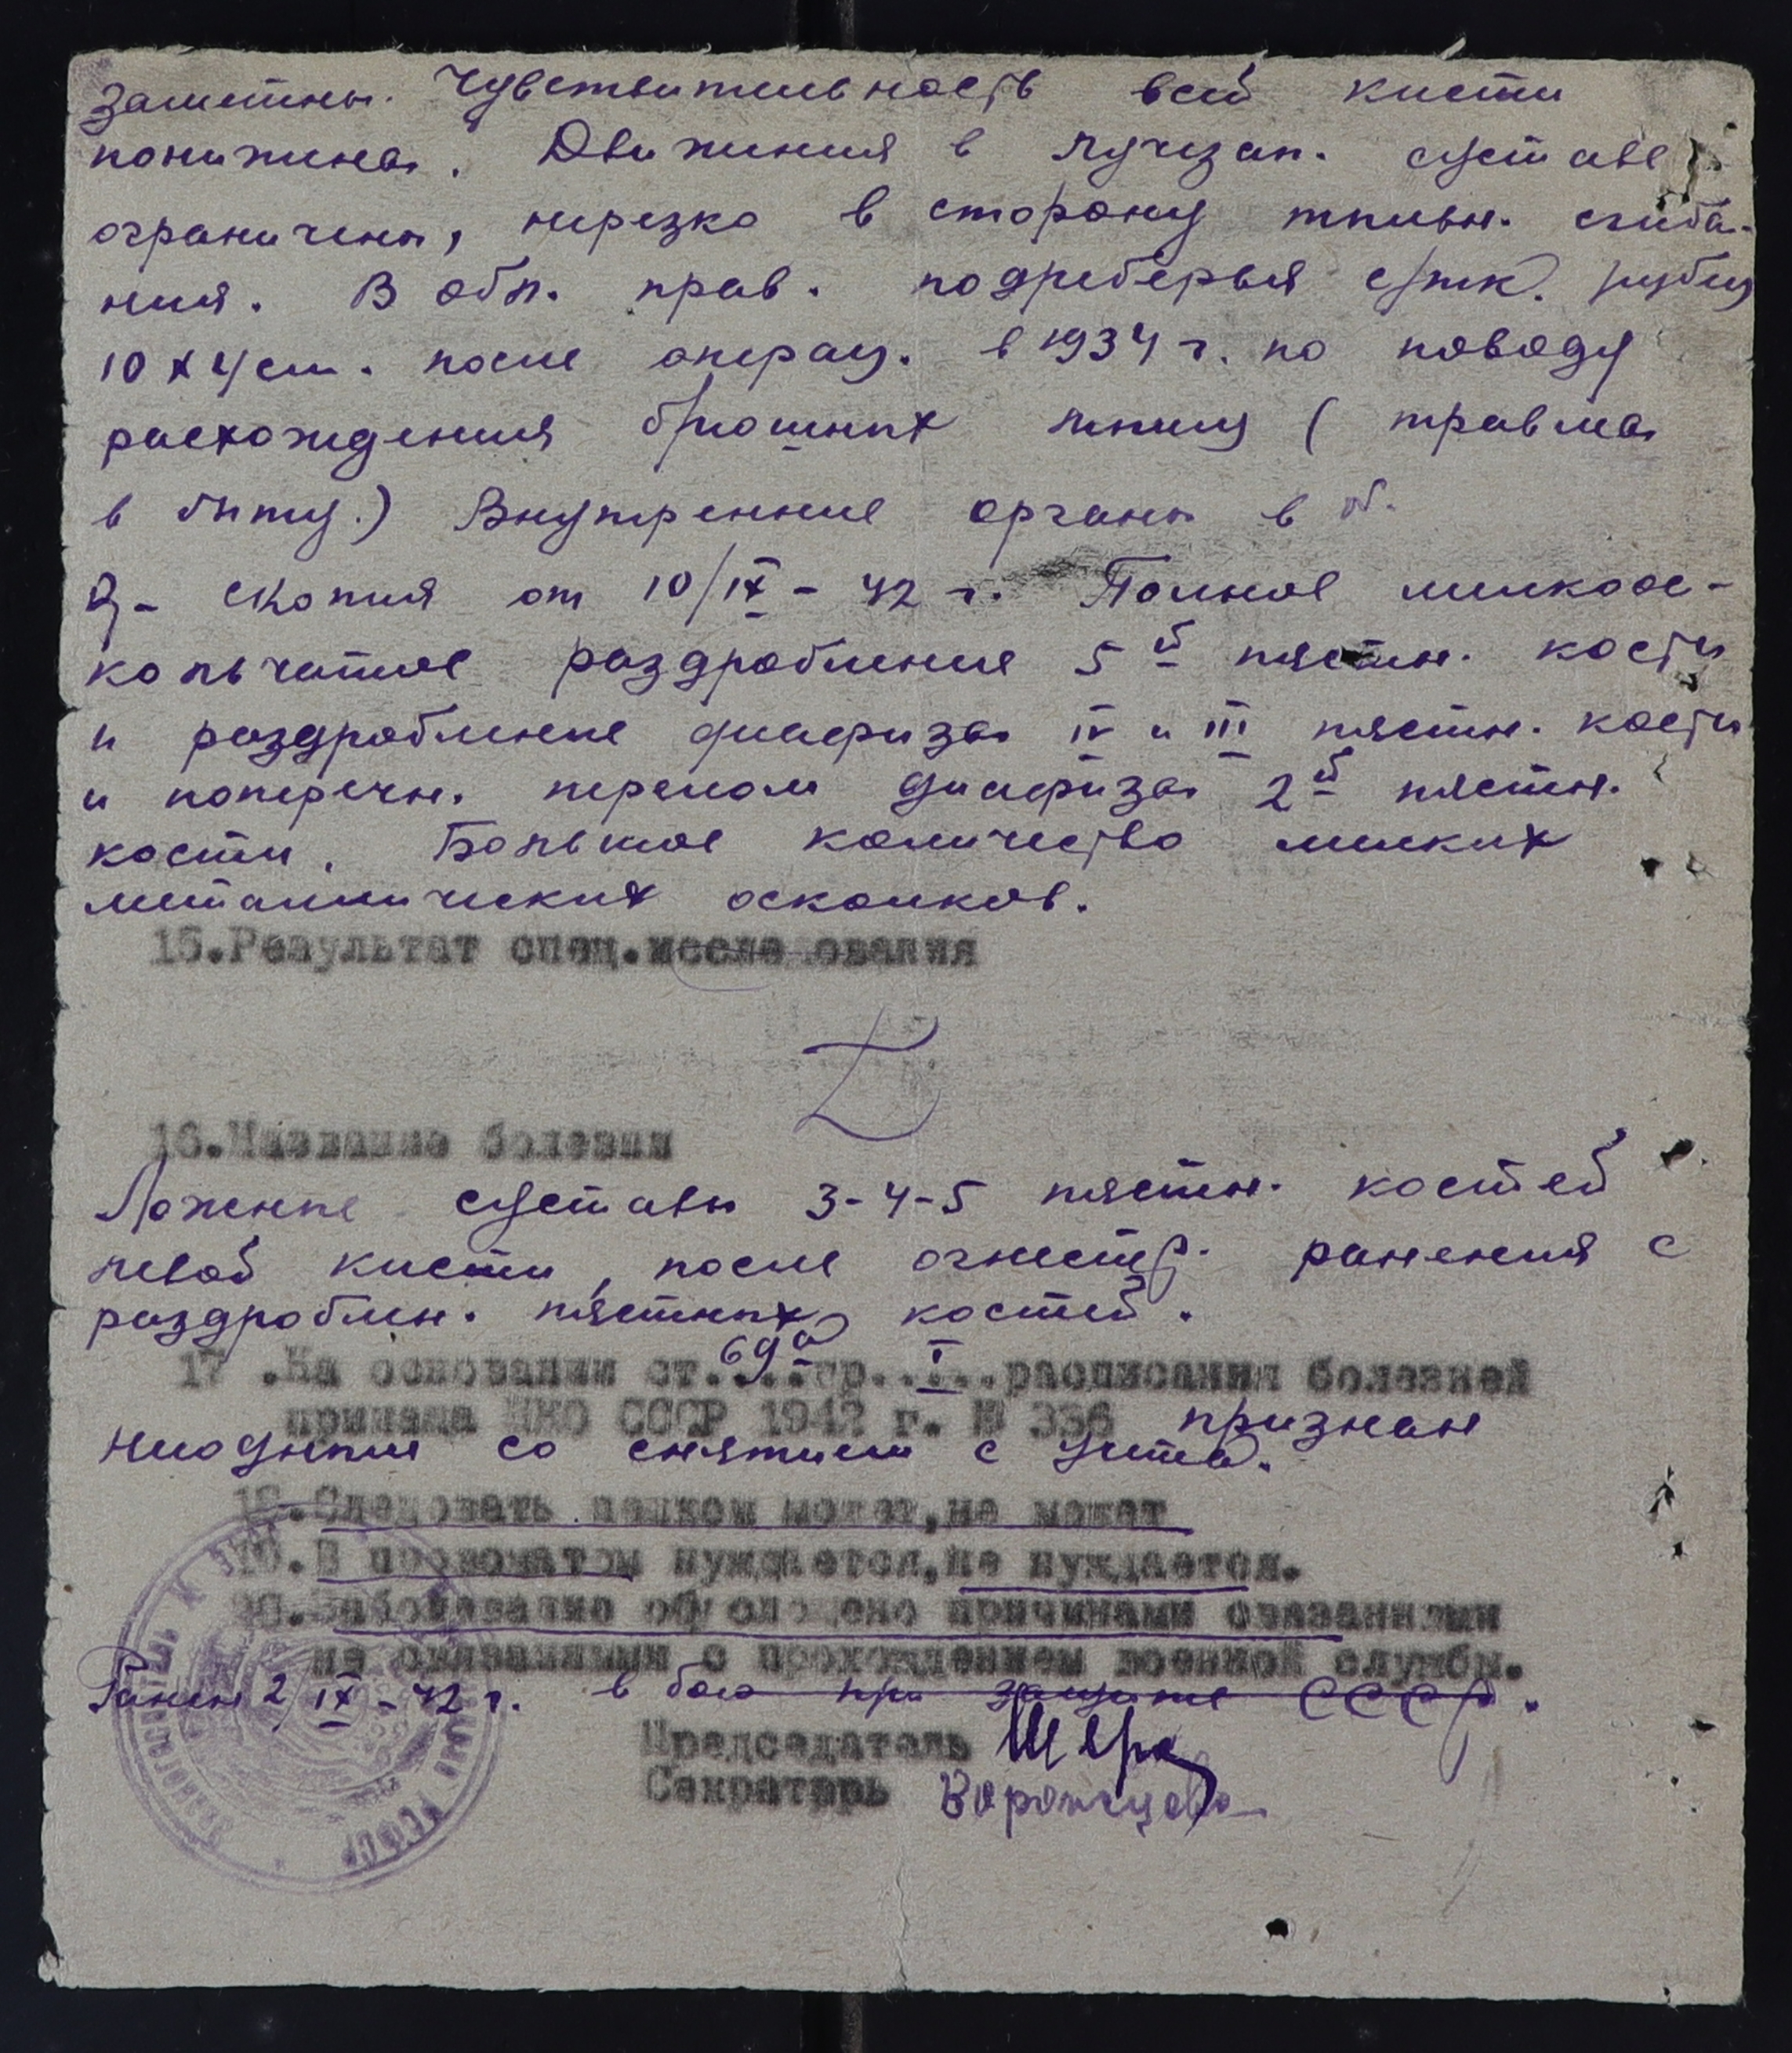 заметны. Чувствительность всей кисти
понижена. Движения в лучезап. суставе
ограничены, нерезко в сторону тыльн. сгиба-
ния. В обл. прав. подреберья рубец
10 х 4 см. после операц. в 1934 г. по поводу
расхождения брюшных мышц (травма
в быту.) Внутренние органы в
R- скопия от 10/IX - 42 г. Полное мелкоос-
кольчатое раздробление 5й пястн. кости
и раздробление диафиза IV и III пястн. кости
и поперечн. перелом диафиза 2й пястн.
кости. Большое количество мелких
металлических осколков.
15.Результат спец.исследования
Z
16.Название болезни
Ложные суставы 3-4-5 пястн. костей
левой кисти, после огнестр. ранения с
раздроблен. пястных костей.
17.На основании ст.69а гр. I расписания болезней
приказа НКО СССР 1942 г. № 336 признан
негодным со снятием с учета.
18.Следовать пешком может,не может
19.В провожатом нуждается,не нуждается.
20.Заболевание обусловлено причинами связанными
не связанными с прохождением военной службы.
Ранен 2/IX - 42 г. в бою при защите СССР.
Председатель
Секретарь Воронцова
РСФСР